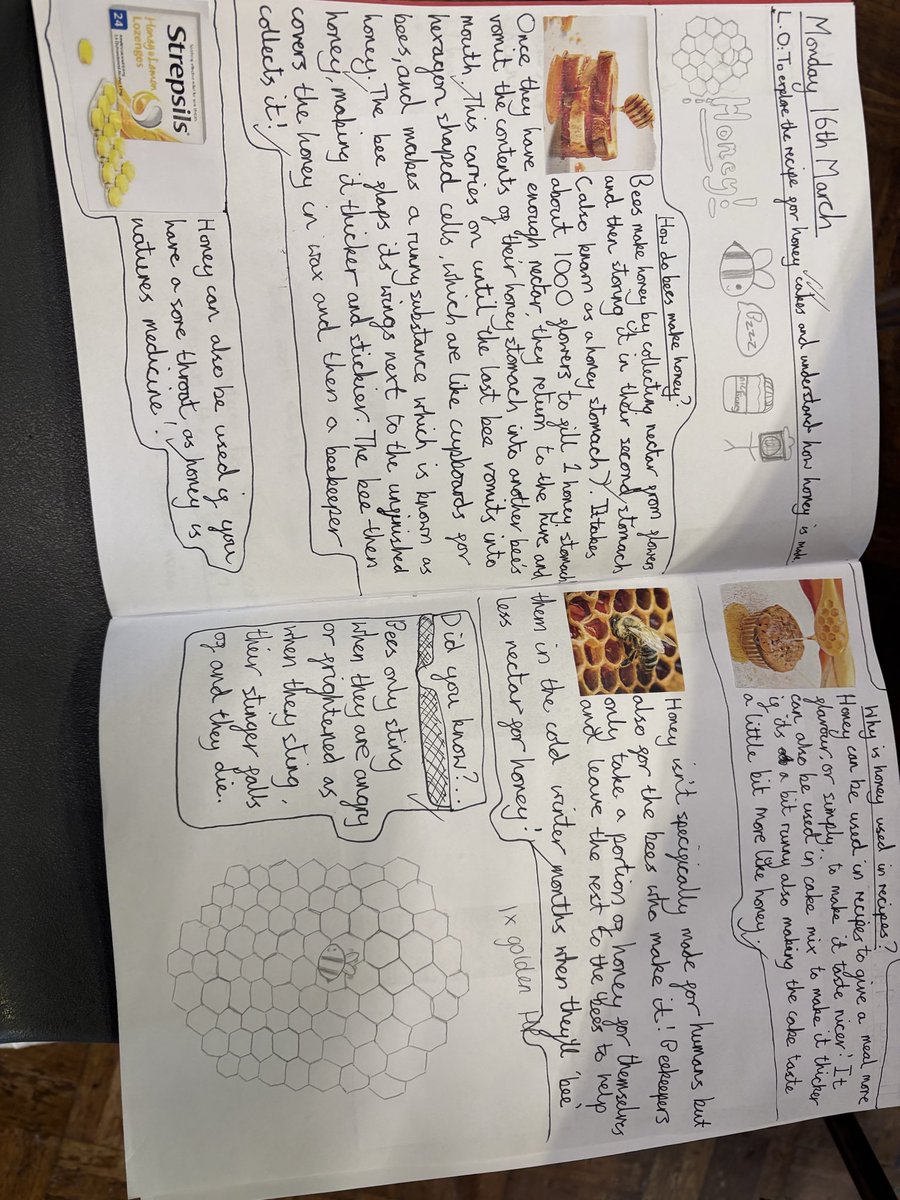 Monday 16th March
L.O: To explore the recipe for honey cakes and understand how honey is made.
Honey!
Bzzz
How do bees make honey?
Bees make honey by collecting nectar from flowers
and then storing it in their second stomach
(also known as a honey stomach). It takes
about 1000 flowers to fill 1 honey stomach
Once they have enough nectar, they return to the hive and
vomit the contents of their honey stomach into another bee's
mouth. This carries on until the last bee vomits into
hexagon shaped cells, which are like cupboards for
bees, and makes a runny substance which is known as
honey. The bee flaps its wings next to the unfinished
honey, making it thicker and stickier. The bee then
covers the honey in wax and then a beekeeper
collects it!
Strepsils
Honey & Lemon
Lozenges
24
Honey can also be used if you
have a sore throat, as honey is
natures medicine!
Why is honey used in recipes?
Honey can be used in recipes to give a meal more
flavour, or simply.. to make it taste nicer! It
can also be used in cake mix to make it thicker
if its a bit runny also making the cake taste
a little bit more like honey.
Honey isn't specifically made for humans but
also for the bees who make it! Beekeepers
only take a portion of honey for themselves
and leave the rest to the bees to help
them in the cold winter months when they'll 'bee'
less nectar for honey!
1x golden
Did you know?...
Bees only sting
when they are angry
or frightened as
when they sting,
their stinger falls
of and they die.